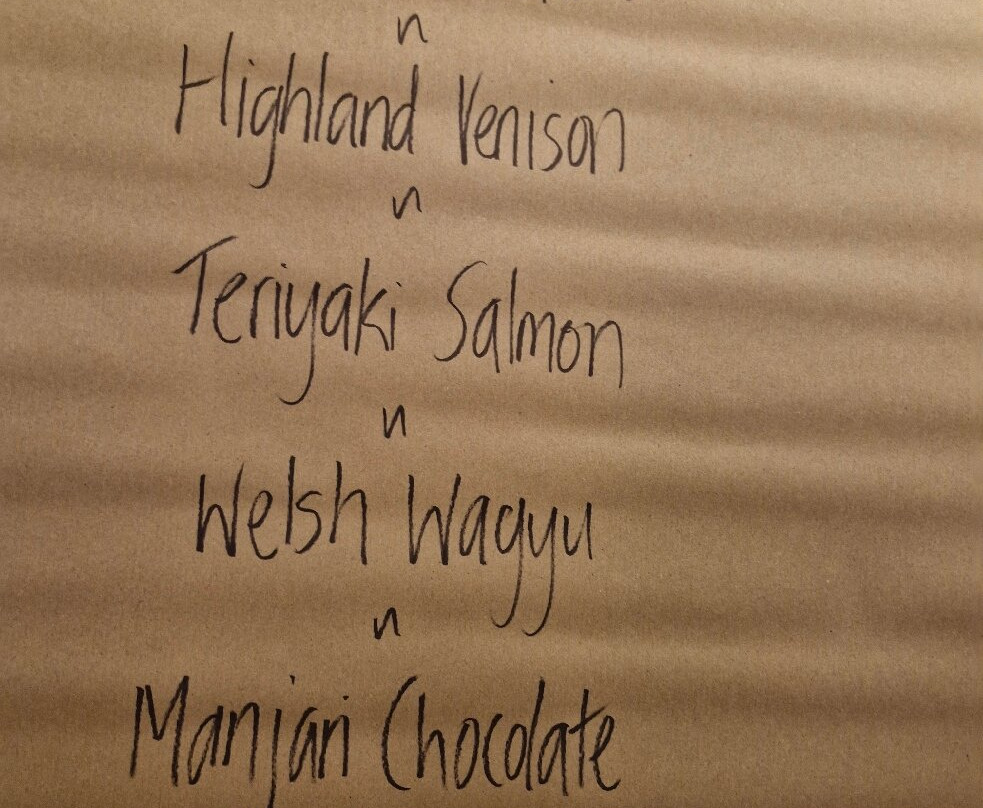 n
Highland Venison
n
Teriyaki Salmon
n
Welsh Wagyu
n
Manjari Chocolate